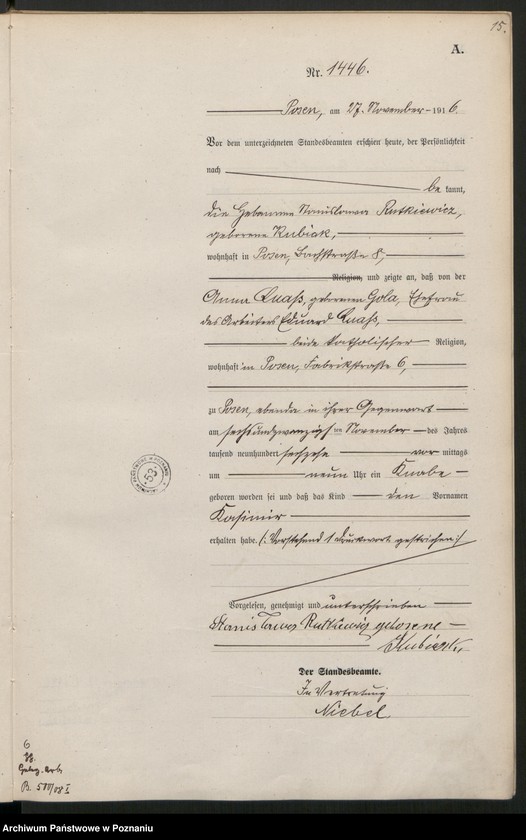 15.
A.
Nr. 1446.
Posen, am 27. November 1916.
Vor dem unterzeichneten Standesbeamten erschien heute, der Persönlichkeit
nach
be kannt,
die Hebamme Stanislawa Rutkiewicz,
geborene Kubiak,
wohnhaft in Posen, Bachstraße 8,
Religion, und zeigte an, daß von der
Anna Quaß, geborenen Gola, Ehefrau
des Arbeiters Eduard Quaß,
beide katholischer Religion,
wohnhaft in Posen, Fabrikstraße 6,
zu Posen, ebenda in ihrer Gegenwart
am sechsundzwanzigsten November des Jahres
tausend neunhundert sechzehn vor mittags
um neun Uhr ein Knabe
geboren worden sei und daß das Kind den Vornamen
Kasimir
erhalten habe. (: Vorstehend 1 Druckwort gestrichen :)
Vorgelesen, genehmigt und unterschrieben
Stanisława Rutkiewicz geborene
Kubiak
Der Standesbeamte.
In Vertretung
Niebel
53
6
B. 580/08 I
Archiwum Państwowe w Poznaniu